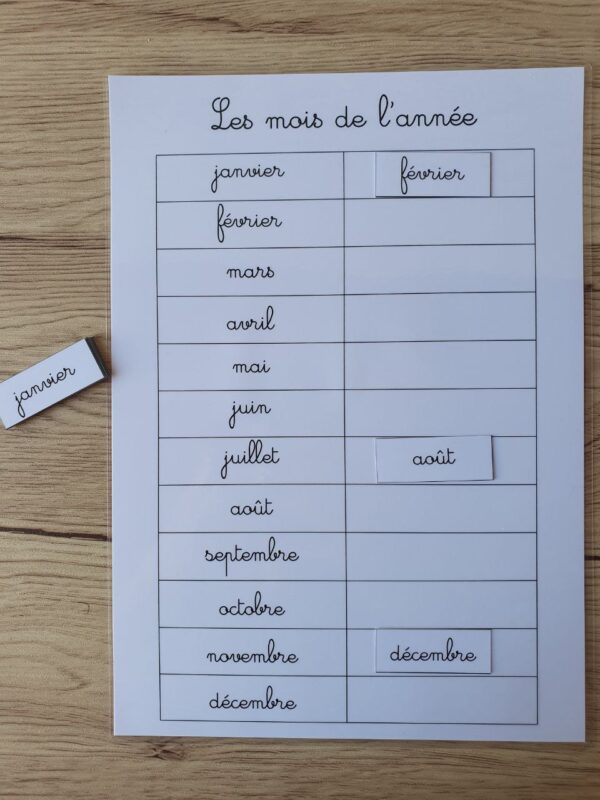 Les mois de l'année
janvier février
février
mars
avril
mai
janvier
juin
juillet août
août
septembre
octobre
novembre décembre
décembre